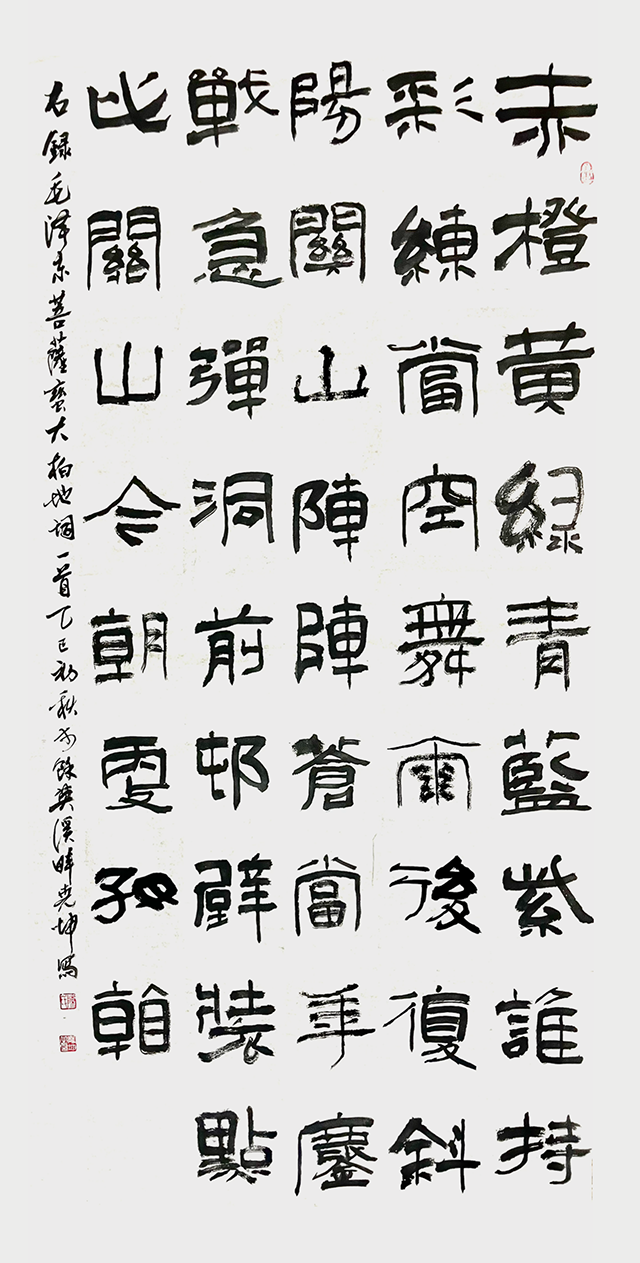 赤橙黄緑青藍紫誰持
彩練當空舞雨後復斜
陽關山陣陣蒼當年鏖
戰急彈洞前邨壁裝點
此關山今朝更好看
右録毛泽东菩薩蠻大柏地詞一首乙巳初秋於餘英溪畔尧坤寫